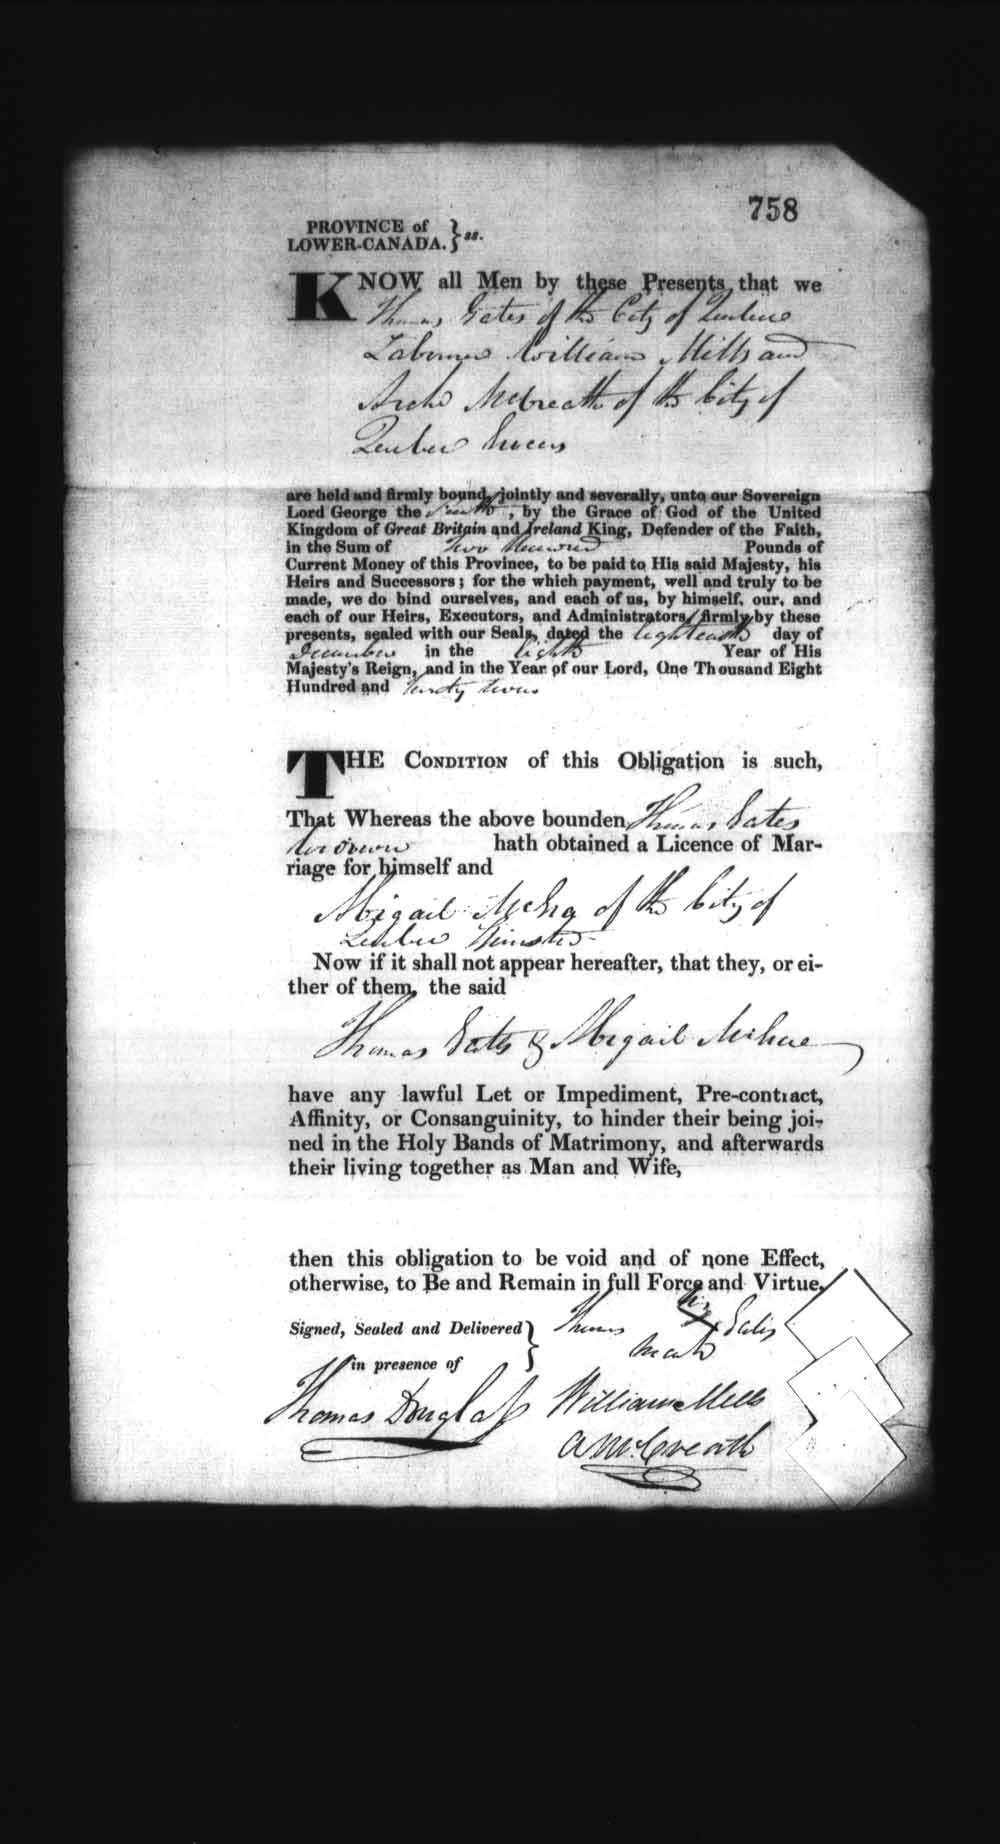 758
PROVINCE of
LOWER-CANADA. } ss.
KNOW all Men by these Presents that we
Thomas Gates of the City of Quebec
Labourer William Mills and
Archd McCreath of the City of
Quebec
are held and firmly bound, jointly and severally, unto our Sovereign
Lord George the Fourth, by the Grace of God of the United
Kingdom of Great Britain and Ireland King, Defender of the Faith,
in the Sum of Two Hundred Pounds of
Current Money of this Province, to be paid to His said Majesty, his
Heirs and Successors; for the which payment, well and truly to be
made, we do bind ourselves, and each of us, by himself, our, and
each of our Heirs, Executors, and Administrators, firmly by these
presents, sealed with our Seals, dated the Eighteenth day of
December in the Eighth Year of His
Majesty's Reign, and in the Year of our Lord, One Thousand Eight
Hundred and Twenty Seven
THE CONDITION of this Obligation is such,
That Whereas the above bounden Thomas Gates
Widower hath obtained a Licence of Mar-
riage for himself and
Abigail of the City of
Quebec Spinster
Now if it shall not appear hereafter, that they, or ei-
ther of them, the said
Thomas Gates & Abigail
have any lawful Let or Impediment, Pre-contract,
Affinity, or Consanguinity, to hinder their being joi-
ned in the Holy Bands of Matrimony, and afterwards
their living together as Man and Wife,
then this obligation to be void and of none Effect,
otherwise, to Be and Remain in full Force and Virtue.
Signed, Sealed and Delivered }
in presence of
his
Thomas X Gates
mark
Thomas Douglass
William Mills
A McCreath